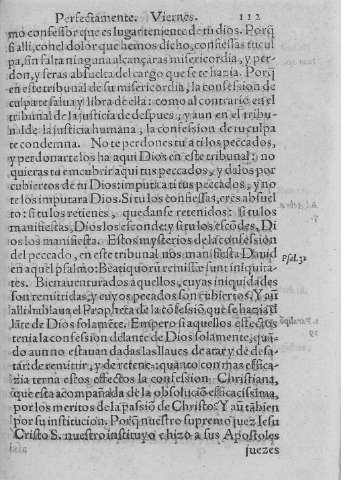 Perfectamente. Viernes. 112
mo confessor que es lugarteniente de tu dios. Porq̃
si alli, cõ hel dolor que hemos dicho, confiessas tu cul
pa, sin falta ninguna alcançaras misericordia, y per-
don, y seras absuelta del cargo que se te hazia. Porq̃
en este tribunal de su misericordia, la confession de
culpa te salua y libra de ella: como al contrario en el
tribunal de la justicia de despues, y aun en el tribu-
nal de la justicia humana, la confession de tu culpa
te condemna. No te perdones tu a ti los peccados,
y perdonarte los ha aqui Dios en este tribunal: no
quieras tu encubrir aqui tus peccados, y dalos por
cubiertos de tu Dios: imputa a ti tus peccados, y no
te los imputara Dios. Si tu los confiessas, eres absuel
to: si tu los retienes, quedanse retenidos: si tu los
manifiestas, Dios los esconde: y si tu los escõdes, Di
os los manifiesta. Estos mysterios de la confession
del peccado, en este tribunal nos manifiesta Dauid
en aq̃l psalmo: Beati quorũ remissæ sunt iniquita-
tes. Bienauenturados aquellos, cuyas iniquidades
son remitidas, y cuyos pecados son cubiertos. Y aũ
alli hablaua el Propheta de la cõfessiõ, que se hazia dẽ
lãte de Dios solamẽte. Empero si aquellos effectos
tenia la confession delante de Dios solamente, quã-
do aun no estauan dadas las llaues de atar y de desa-
tar: de remittir, y de retener: quanto con mas effica-
zia terna estos effectos la confession Christiana,
que esta acompañada de la obsoluciõ efficacissima,
por los meritos de la passiõ de Christo: Y aũ tãbien
por su institucion. Porq̃ nuestro supremo juez Iesu
Cristo S. nuestro instituyo e hizo a sus Apostoles
juezes
Psal. 31